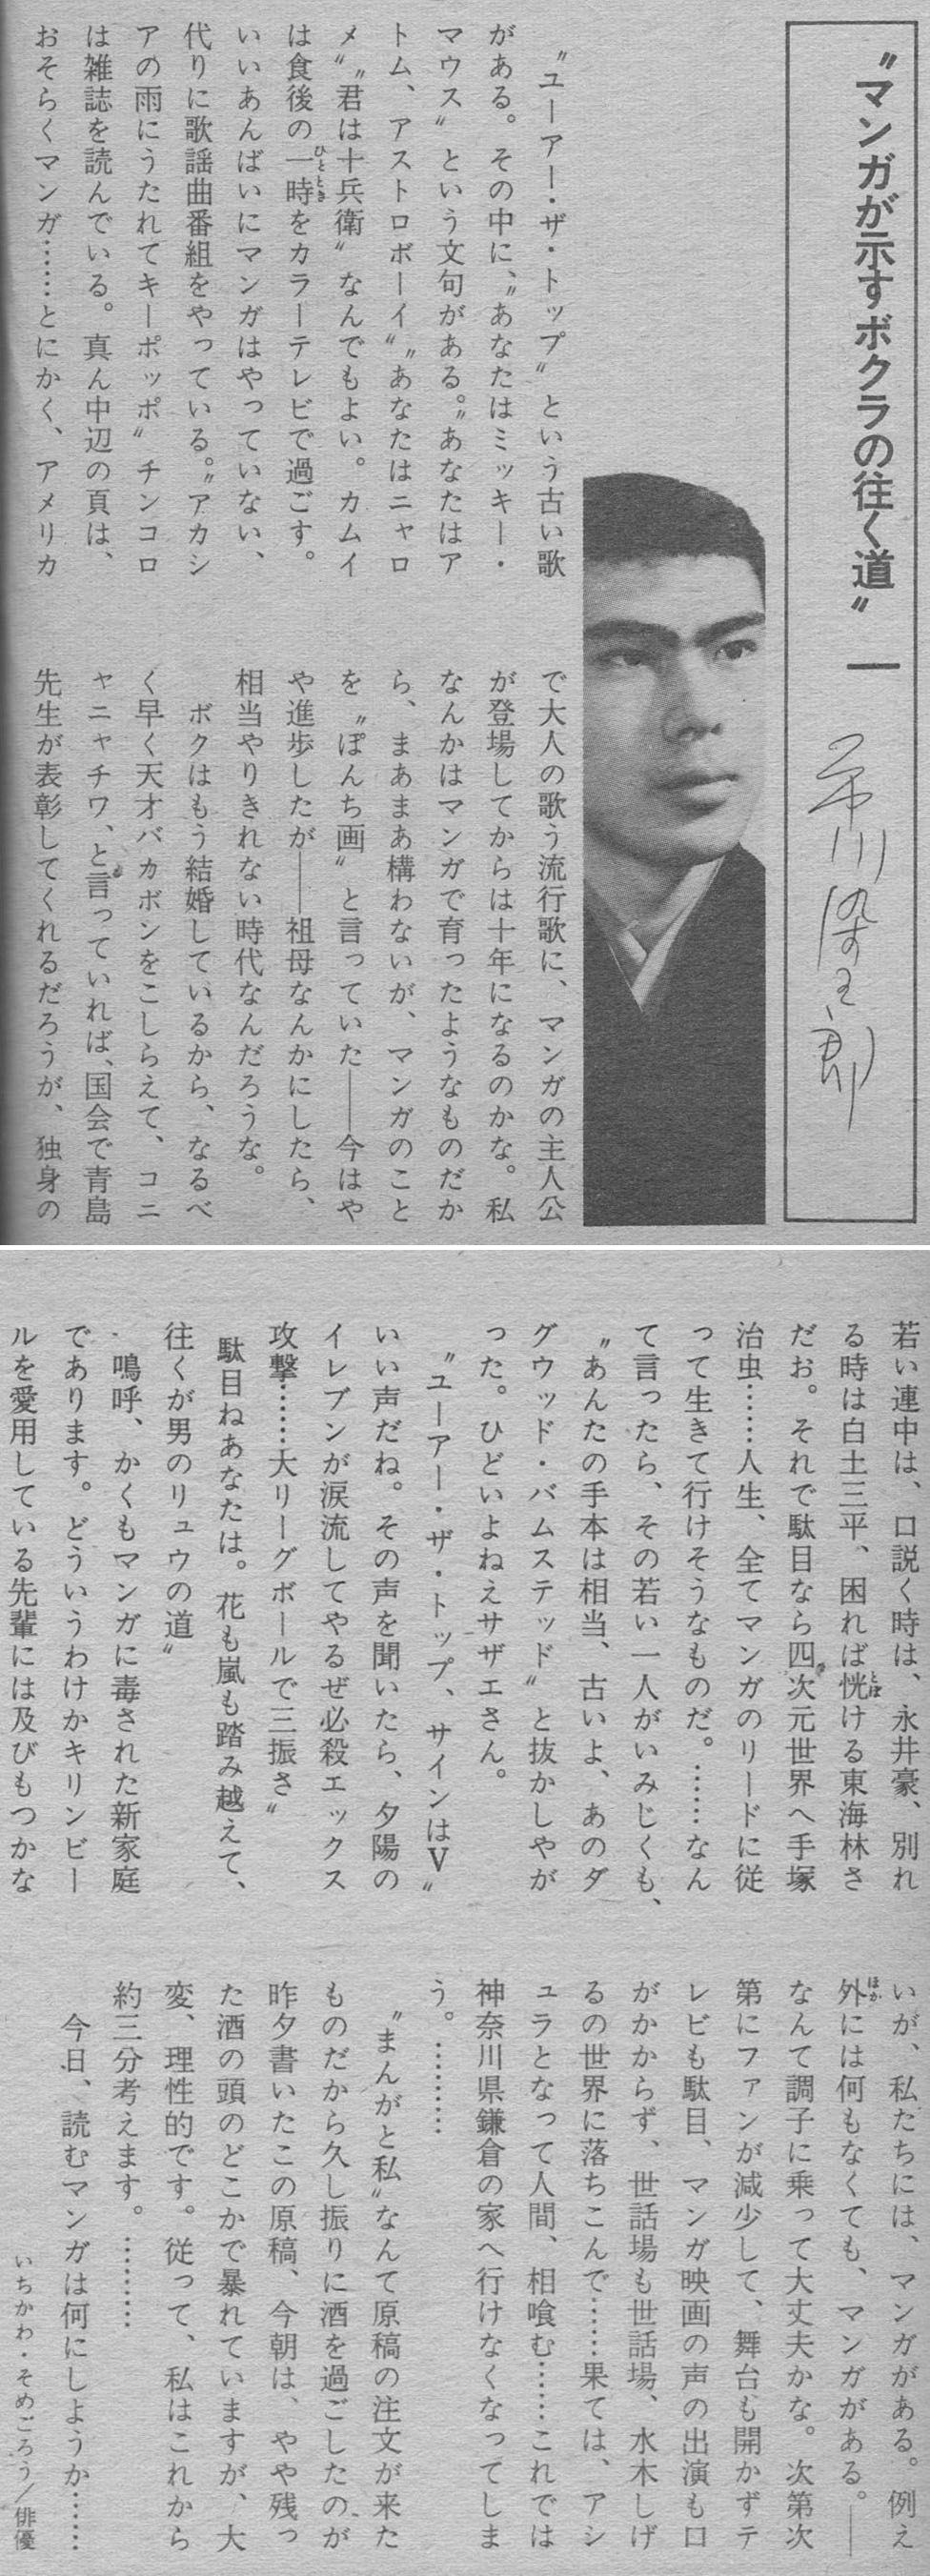 〝マンガが示すボクラの往く道〟―
市川染五郎
〝ユーアー・ザ・トップ〟という古い歌
がある。その中に、〝あなたはミッキー・
マウス〟という文句がある。〝あなたはア
トム、アストロボーイ〟〝あなたはニャロ
メ〟〝君は十兵衛〟なんでもよい。カムイ
は食後の一時をカラーテレビで過ごす。
ひととき
いいあんばいにマンガはやっていない、
代りに歌謡曲番組をやっている。〝アカシ
アの雨にうたれてキーポッポ〟チンコロ
は雑誌を読んでいる。真ん中辺の頁は、
おそらくマンガ……とにかく、アメリカ
で大人の歌う流行歌に、マンガの主人公
が登場してからは十年になるのかな。私
なんかはマンガで育ったようなものだか
ら、まあまあ構わないが、マンガのこと
を〝ぽんち画〟と言っていた――今はや
や進歩したが――祖母なんかにしたら、
相当やりきれない時代なんだろうな。
ボクはもう結婚しているから、なるべ
く早く天才バカボンをこしらえて、コニ
ャニャチワ、と言っていれば、国会で青島
先生が表彰してくれるだろうが、独身の
若い連中は、口説く時は、永井豪、別れ
る時は白土三平、困れば恍ける東海林さ
とぼ
だお。それで駄目なら四次元世界へ手塚
治虫……人生、全てマンガのリードに従
って生きて行けそうなものだ。……なん
て言ったら、その若い一人がいみじくも、
〝あんたの手本は相当、古いよ、あのダ
グウッド・バムステッド〟と抜かしやが
った。ひどいよねえサザエさん。
〝ユーアー・ザ・トップ、サインはV〟
いい声だね。その声を聞いたら、夕陽の
イレブンが涙流してやるぜ必殺エックス
攻撃……大リーグボールで三振さ〟
駄目ねあなたは。花も嵐も踏み越えて、
往くが男のリュウの道〟
嗚呼、かくもマンガに毒された新家庭
であります。どういうわけかキリンビー
ルを愛用している先輩には及びもつかな
いが、私たちには、マンガがある。例え
外には何もなくても、マンガがある。――
ほか
なんて調子に乗って大丈夫かな。次第次
第にファンが減少して、舞台も開かずテ
レビも駄目、マンガ映画の声の出演も口
がかからず、世話場も世話場、水木しげ
るの世界に落ちこんで……果ては、アシ
ュラとなって人間、相喰む……これでは
神奈川県鎌倉の家へ行けなくなってしま
う。………
〝まんがと私〟なんて原稿の注文が来た
ものだから久し振りに酒を過ごしたのが
昨夕書いたこの原稿、今朝は、やや残っ
た酒の頭のどこかで暴れていますが、大
変、理性的です。従って、私はこれから
約三分考えます。………
今日、読むマンガは何にしようか……
いちかわ・そめごろう／俳優